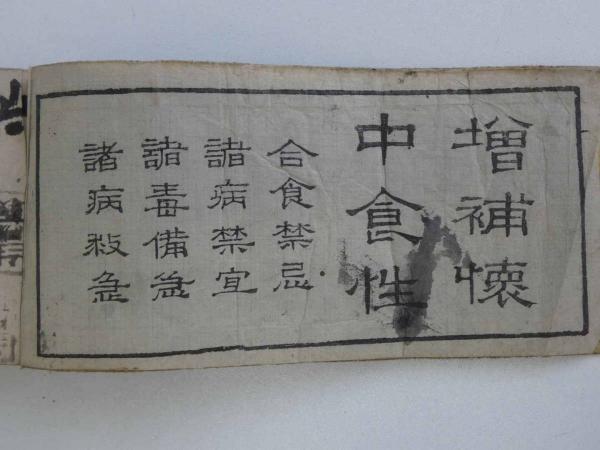 增補懷
中食性
合食禁忌
諸病禁宜
諸毒備急
諸病救急